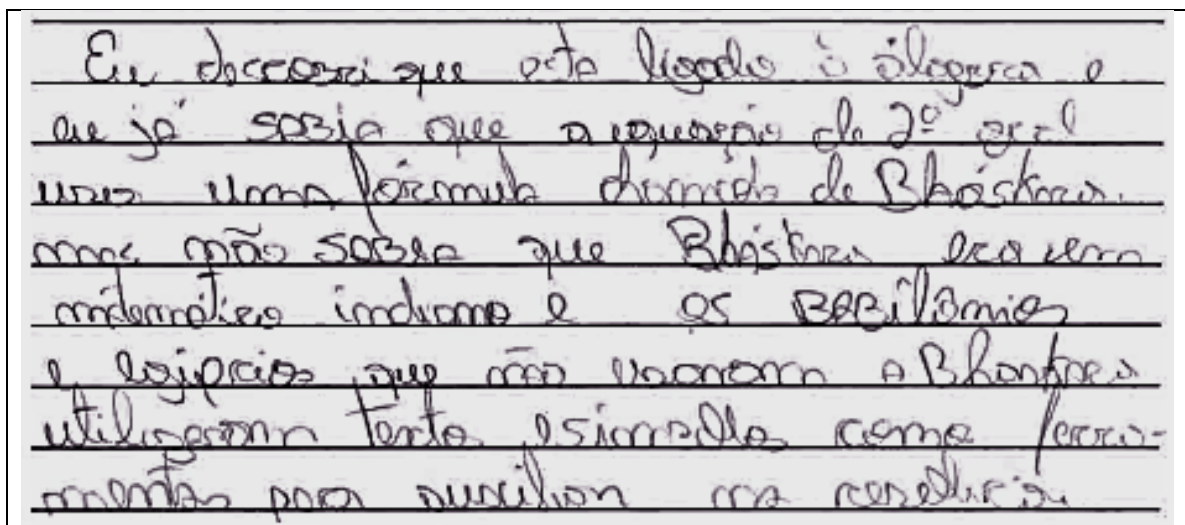 Eu descobri que esta ligado à álgebra e
eu já sabia que a equação de 2º grau
usa uma fórmula chamada de Bháskara.
mas não sabia que Bháskara era um
matemático indiano e os Babilônios
e egípcios que não usavam a Bhaskara
utilizaram textos e simbolos como ferra-
mentas para auxiliar na resolução.